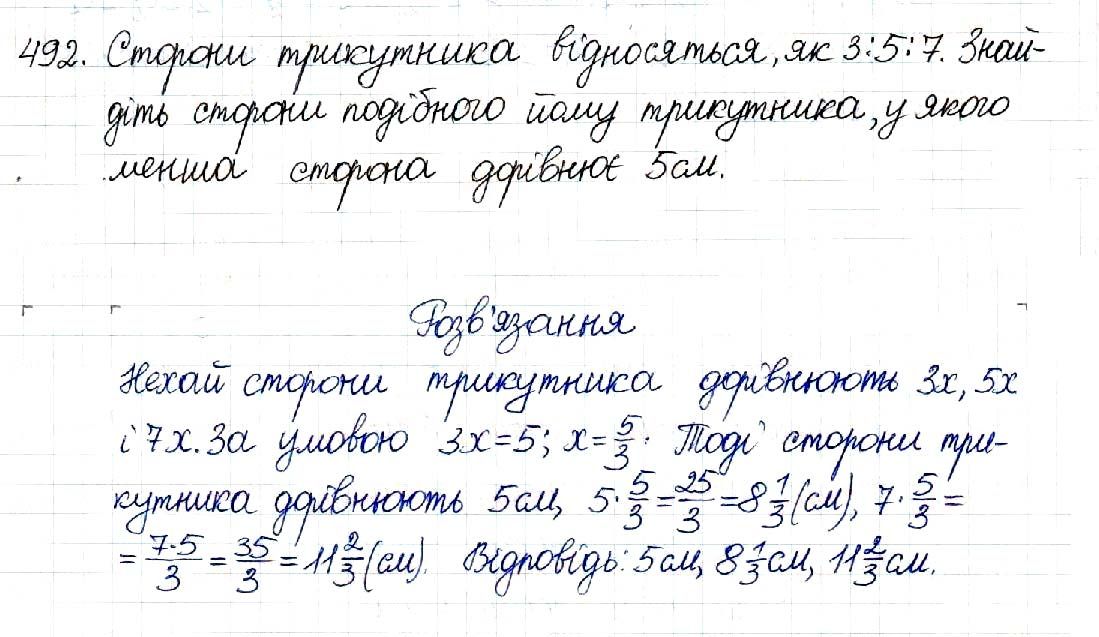 492. Сторони трикутника відносяться, як 3:5:7. Знай-
діть сторони подібного йому трикутника, у якого
менша сторона дорівнює 5см.
Розв'язання
Нехай сторони трикутника дорівнюють 3х, 5х
і 7х. За умовою 3х=5; х=5/3. Тоді сторони три-
кутника дорівнюють 5см, 5·5/3=25/3=8 1/3(см), 7·5/3=
=7·5/3=35/3=11 2/3(см). Відповідь: 5см, 8 1/3см, 11 2/3см.